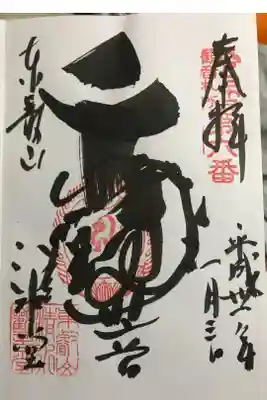 奉拝
第六番
平成 年
一月三日
千手観世音
東叡山
清水堂